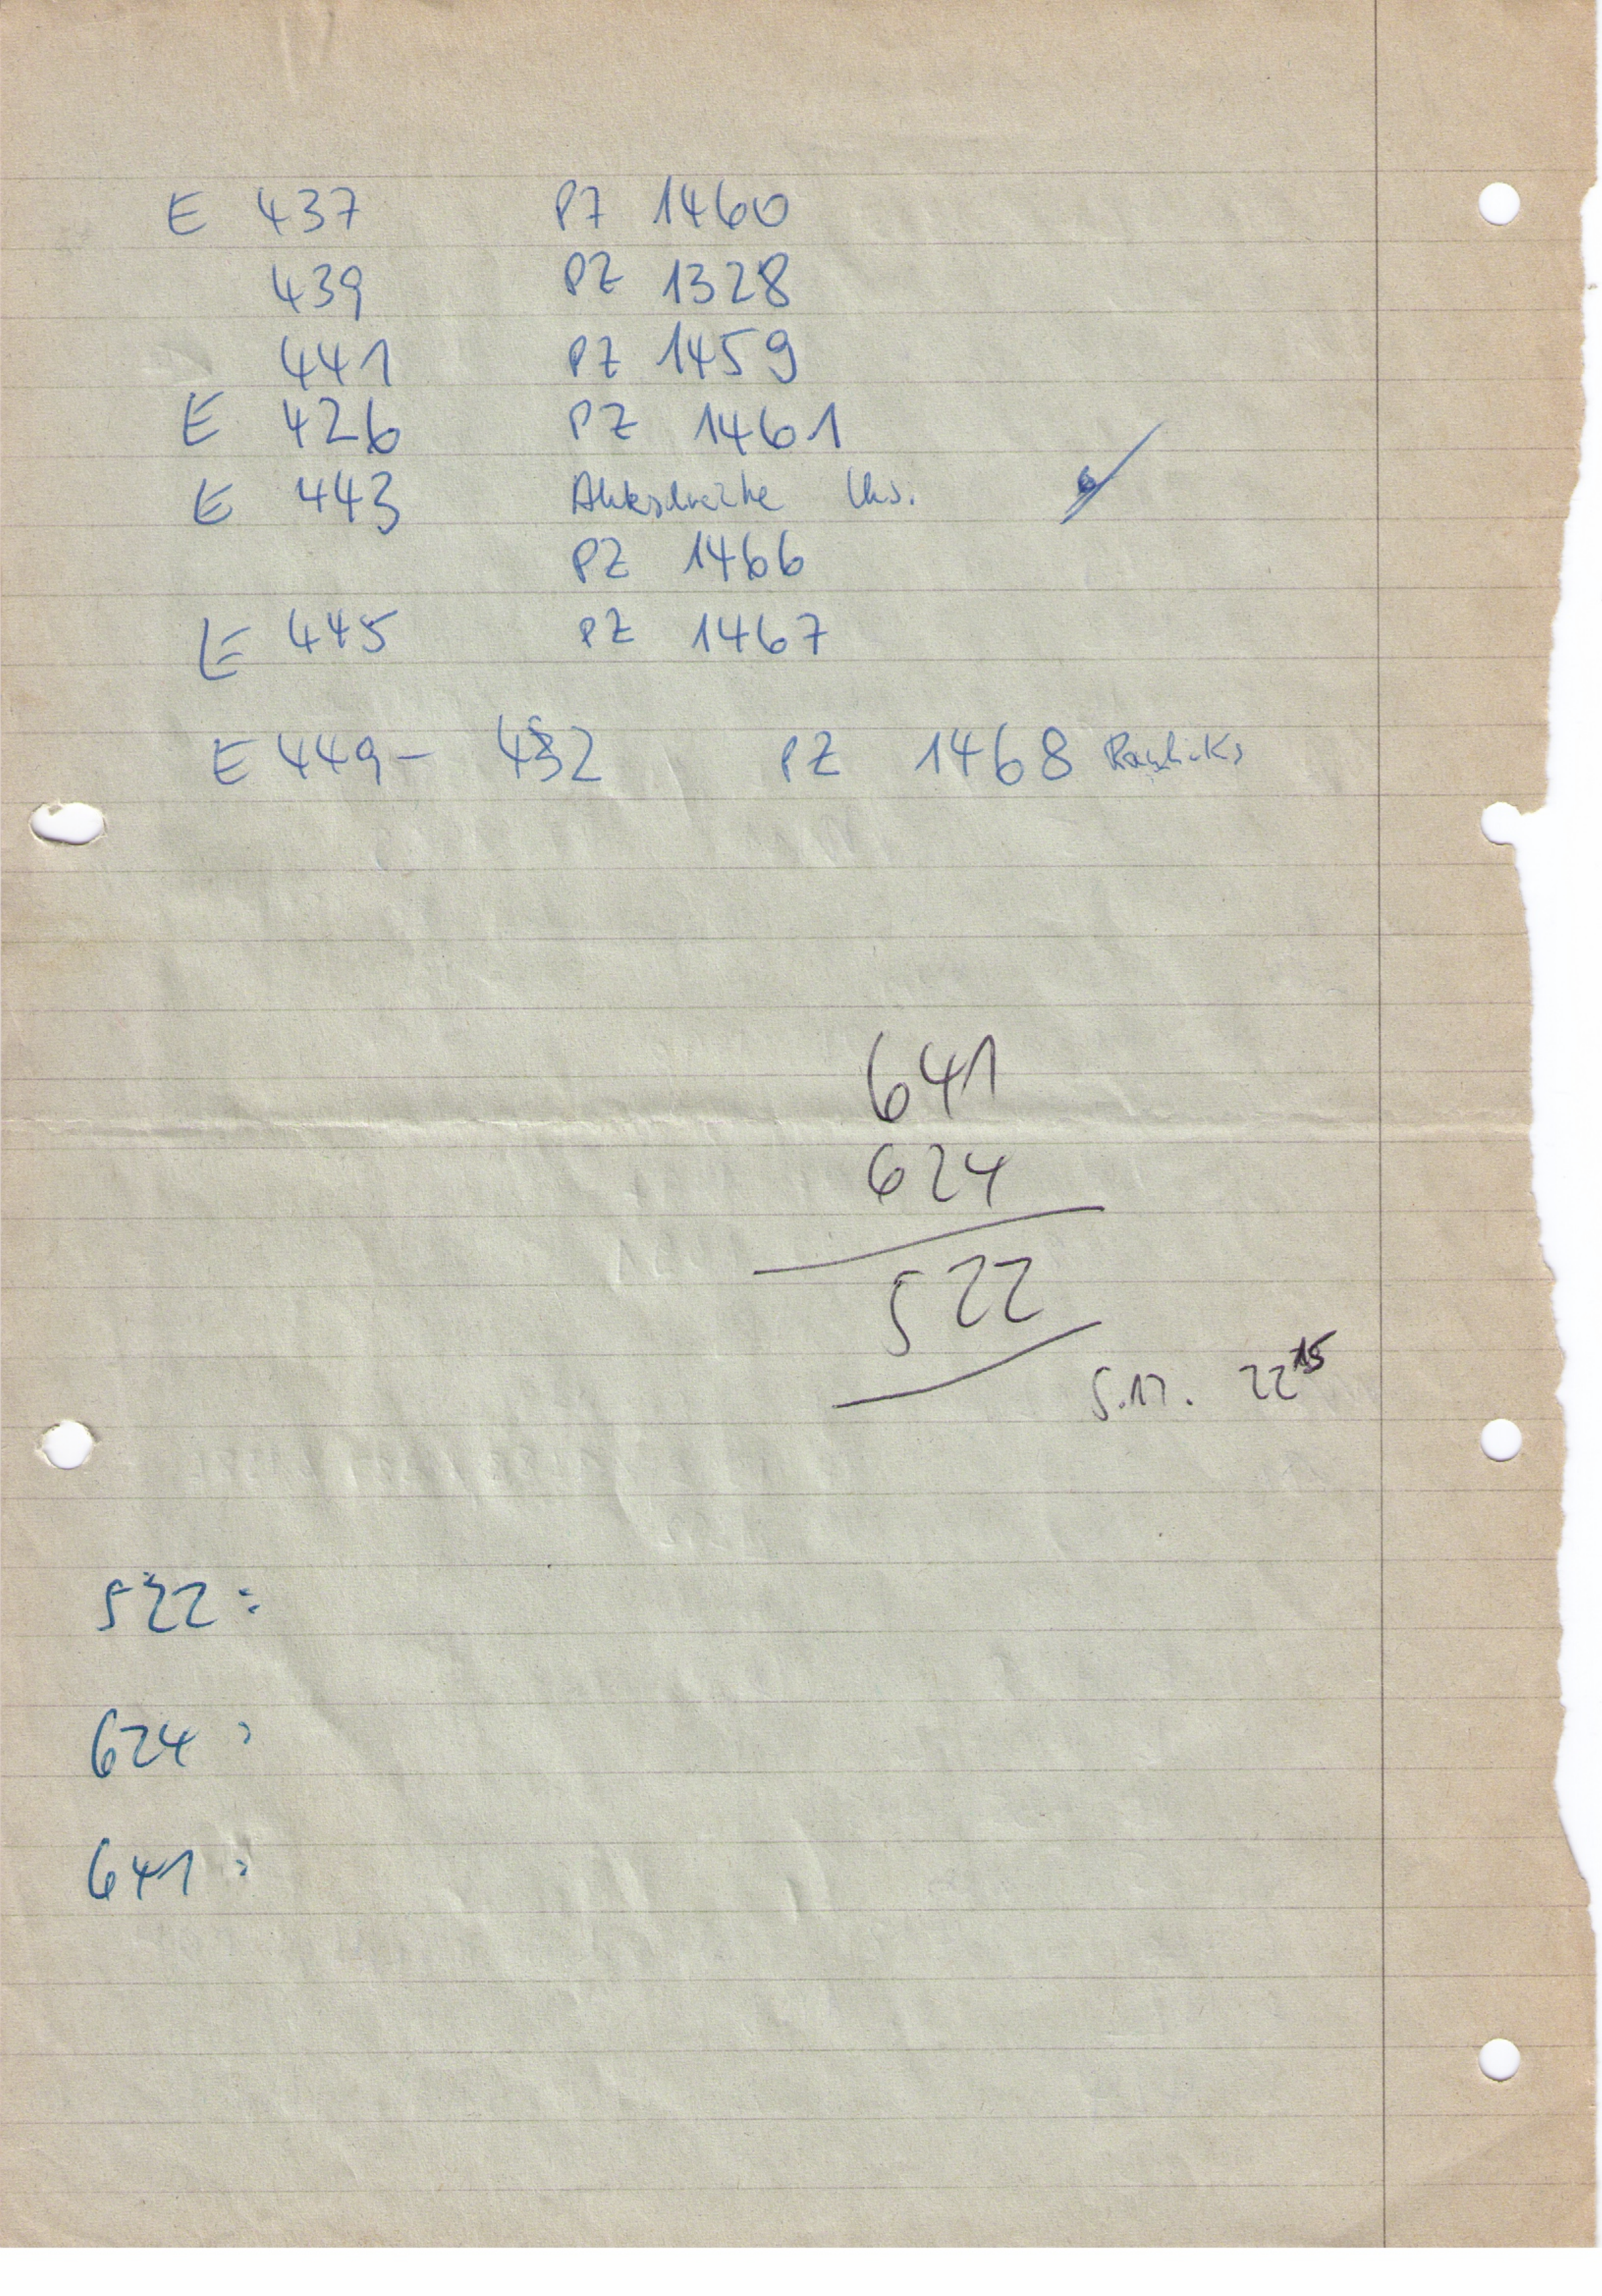 E 437 PZ 1460
439 PZ 1328
441 PZ 1459
E 426 PZ 1461
E 443
PZ 1466
E 445 PZ 1467
E 449 - 452 PZ 1468
641
624
522
5.11. 22 15
522:
624:
641: